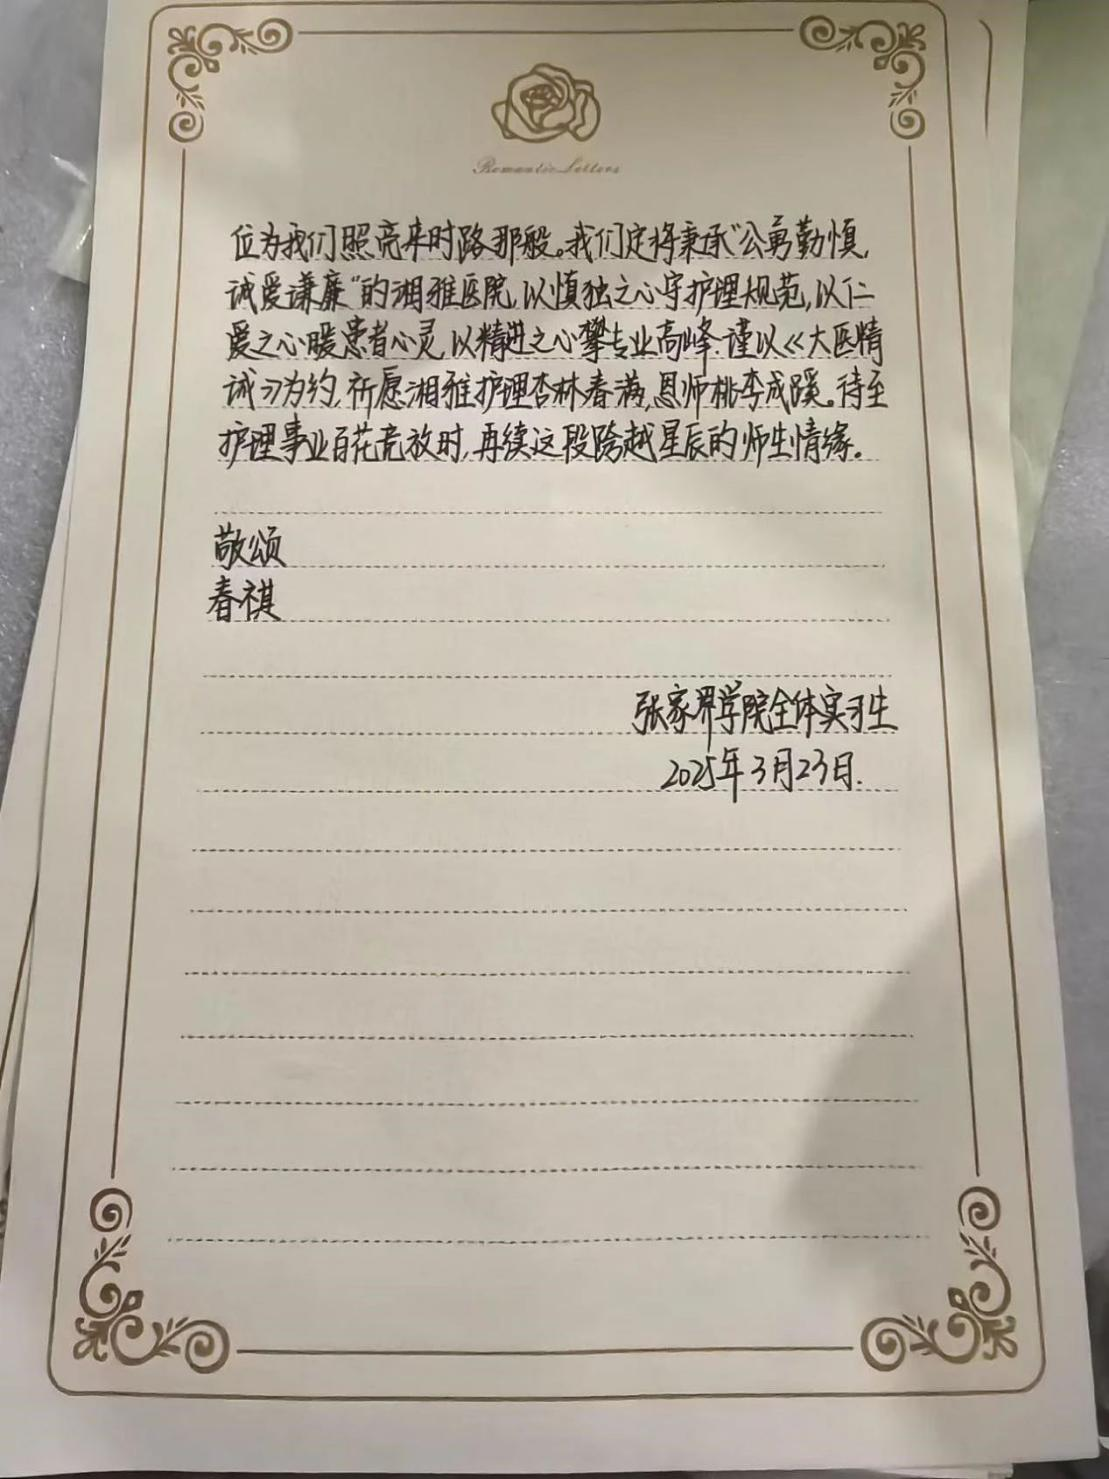 Romantic Letters
位为我们照亮来时路那般。我们定将秉承“公勇勤慎,
诚爱谦廉”的湘雅医院,以慎独之心守护理规范,以仁
爱之心暖患者心灵,以精进之心攀专业高峰.谨以《大医精
诚》为约,祈愿湘雅护理杏林春满,恩师桃李成蹊。待至
护理事业百花竞放时,再续这段跨越星辰的师生情缘。
敬颂
春祺
张家界学院全体实习生
2025年3月23日.